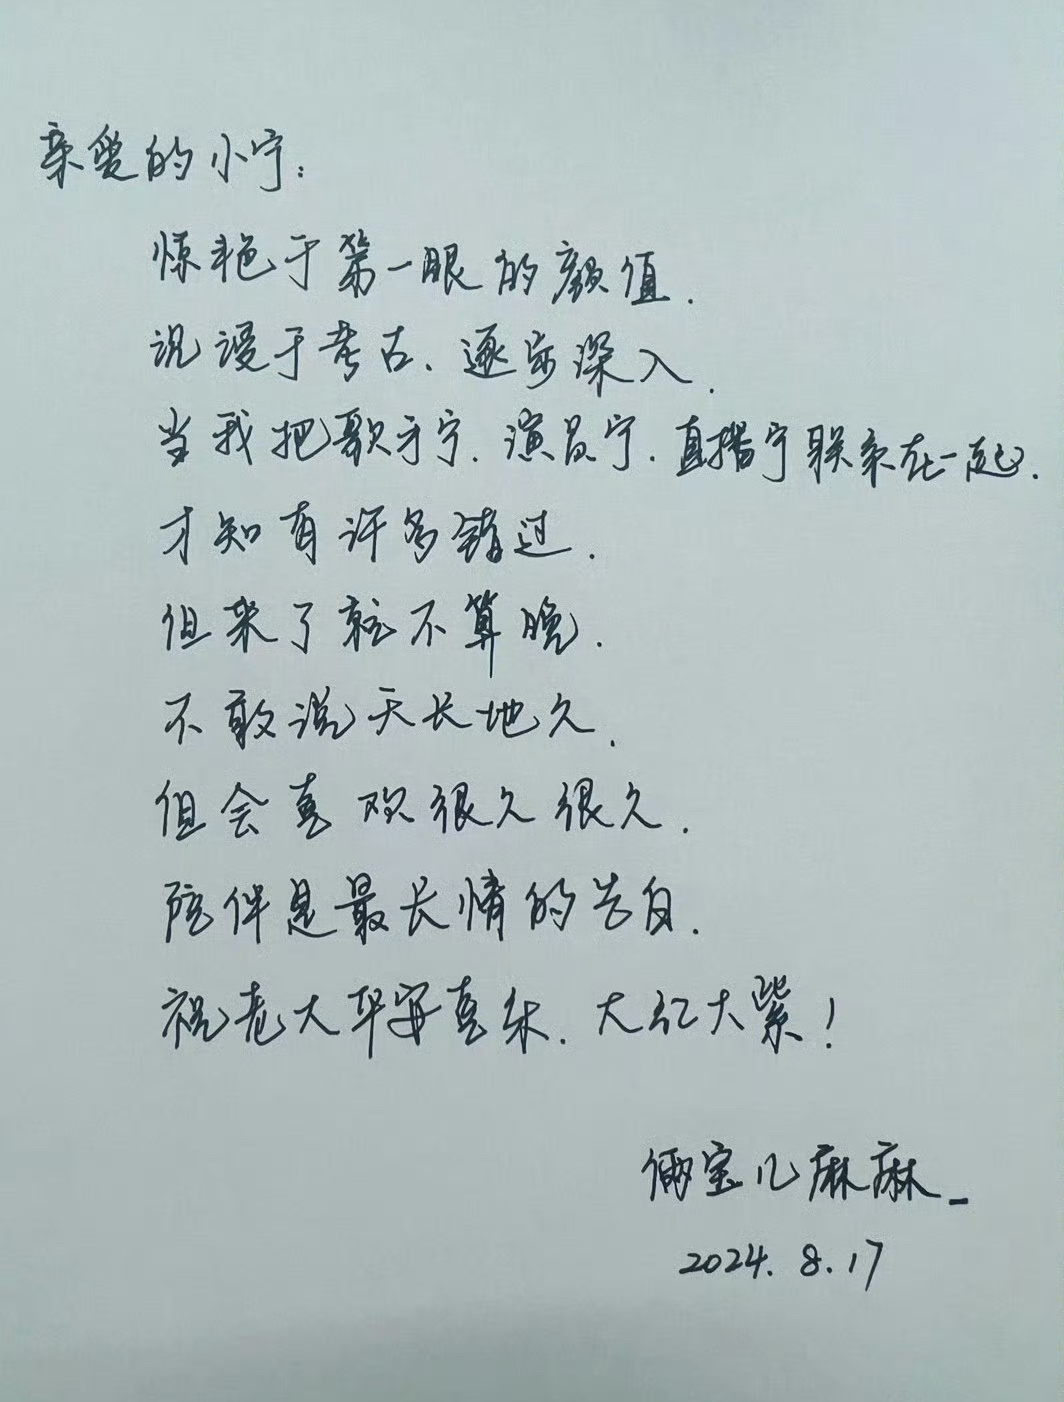 亲爱的小宁：
惊艳于第一眼的颜值.
沉浸于考古、逐步深入.
当我把歌手宁.演员宁.直播宁联系在一起.
才知有许多错过.
但来了就不算晚.
不敢说天长地久.
但会喜欢很久很久.
陪伴是最长情的告白.
祝老大平安喜乐.大红大紫！
俩宝儿麻麻_
2024.8.17